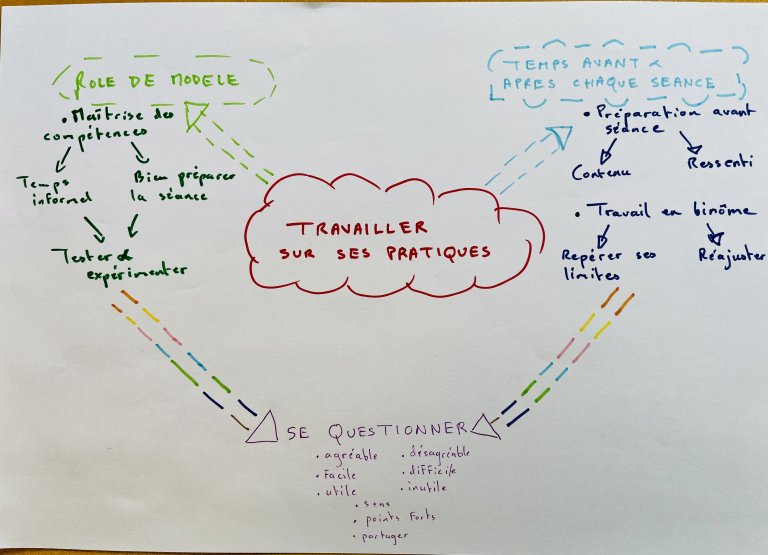 ROLE DE MODELE
• Maîtrise des
compétences
Temps
informel
Bien préparer
la séance
Tester &
expérimenter
TEMPS AVANT &
APRES CHAQUE SEANCE
• Préparation avant
séance
Contenu
Ressenti
• Travail en binôme
Repérer ses
limites
Réajuster
TRAVAILLER
SUR SES PRATIQUES
SE QUESTIONNER
• agréable
• Facile
• utile
• désagréable
• difficile
• inutile
• sens
• points forts
• partager